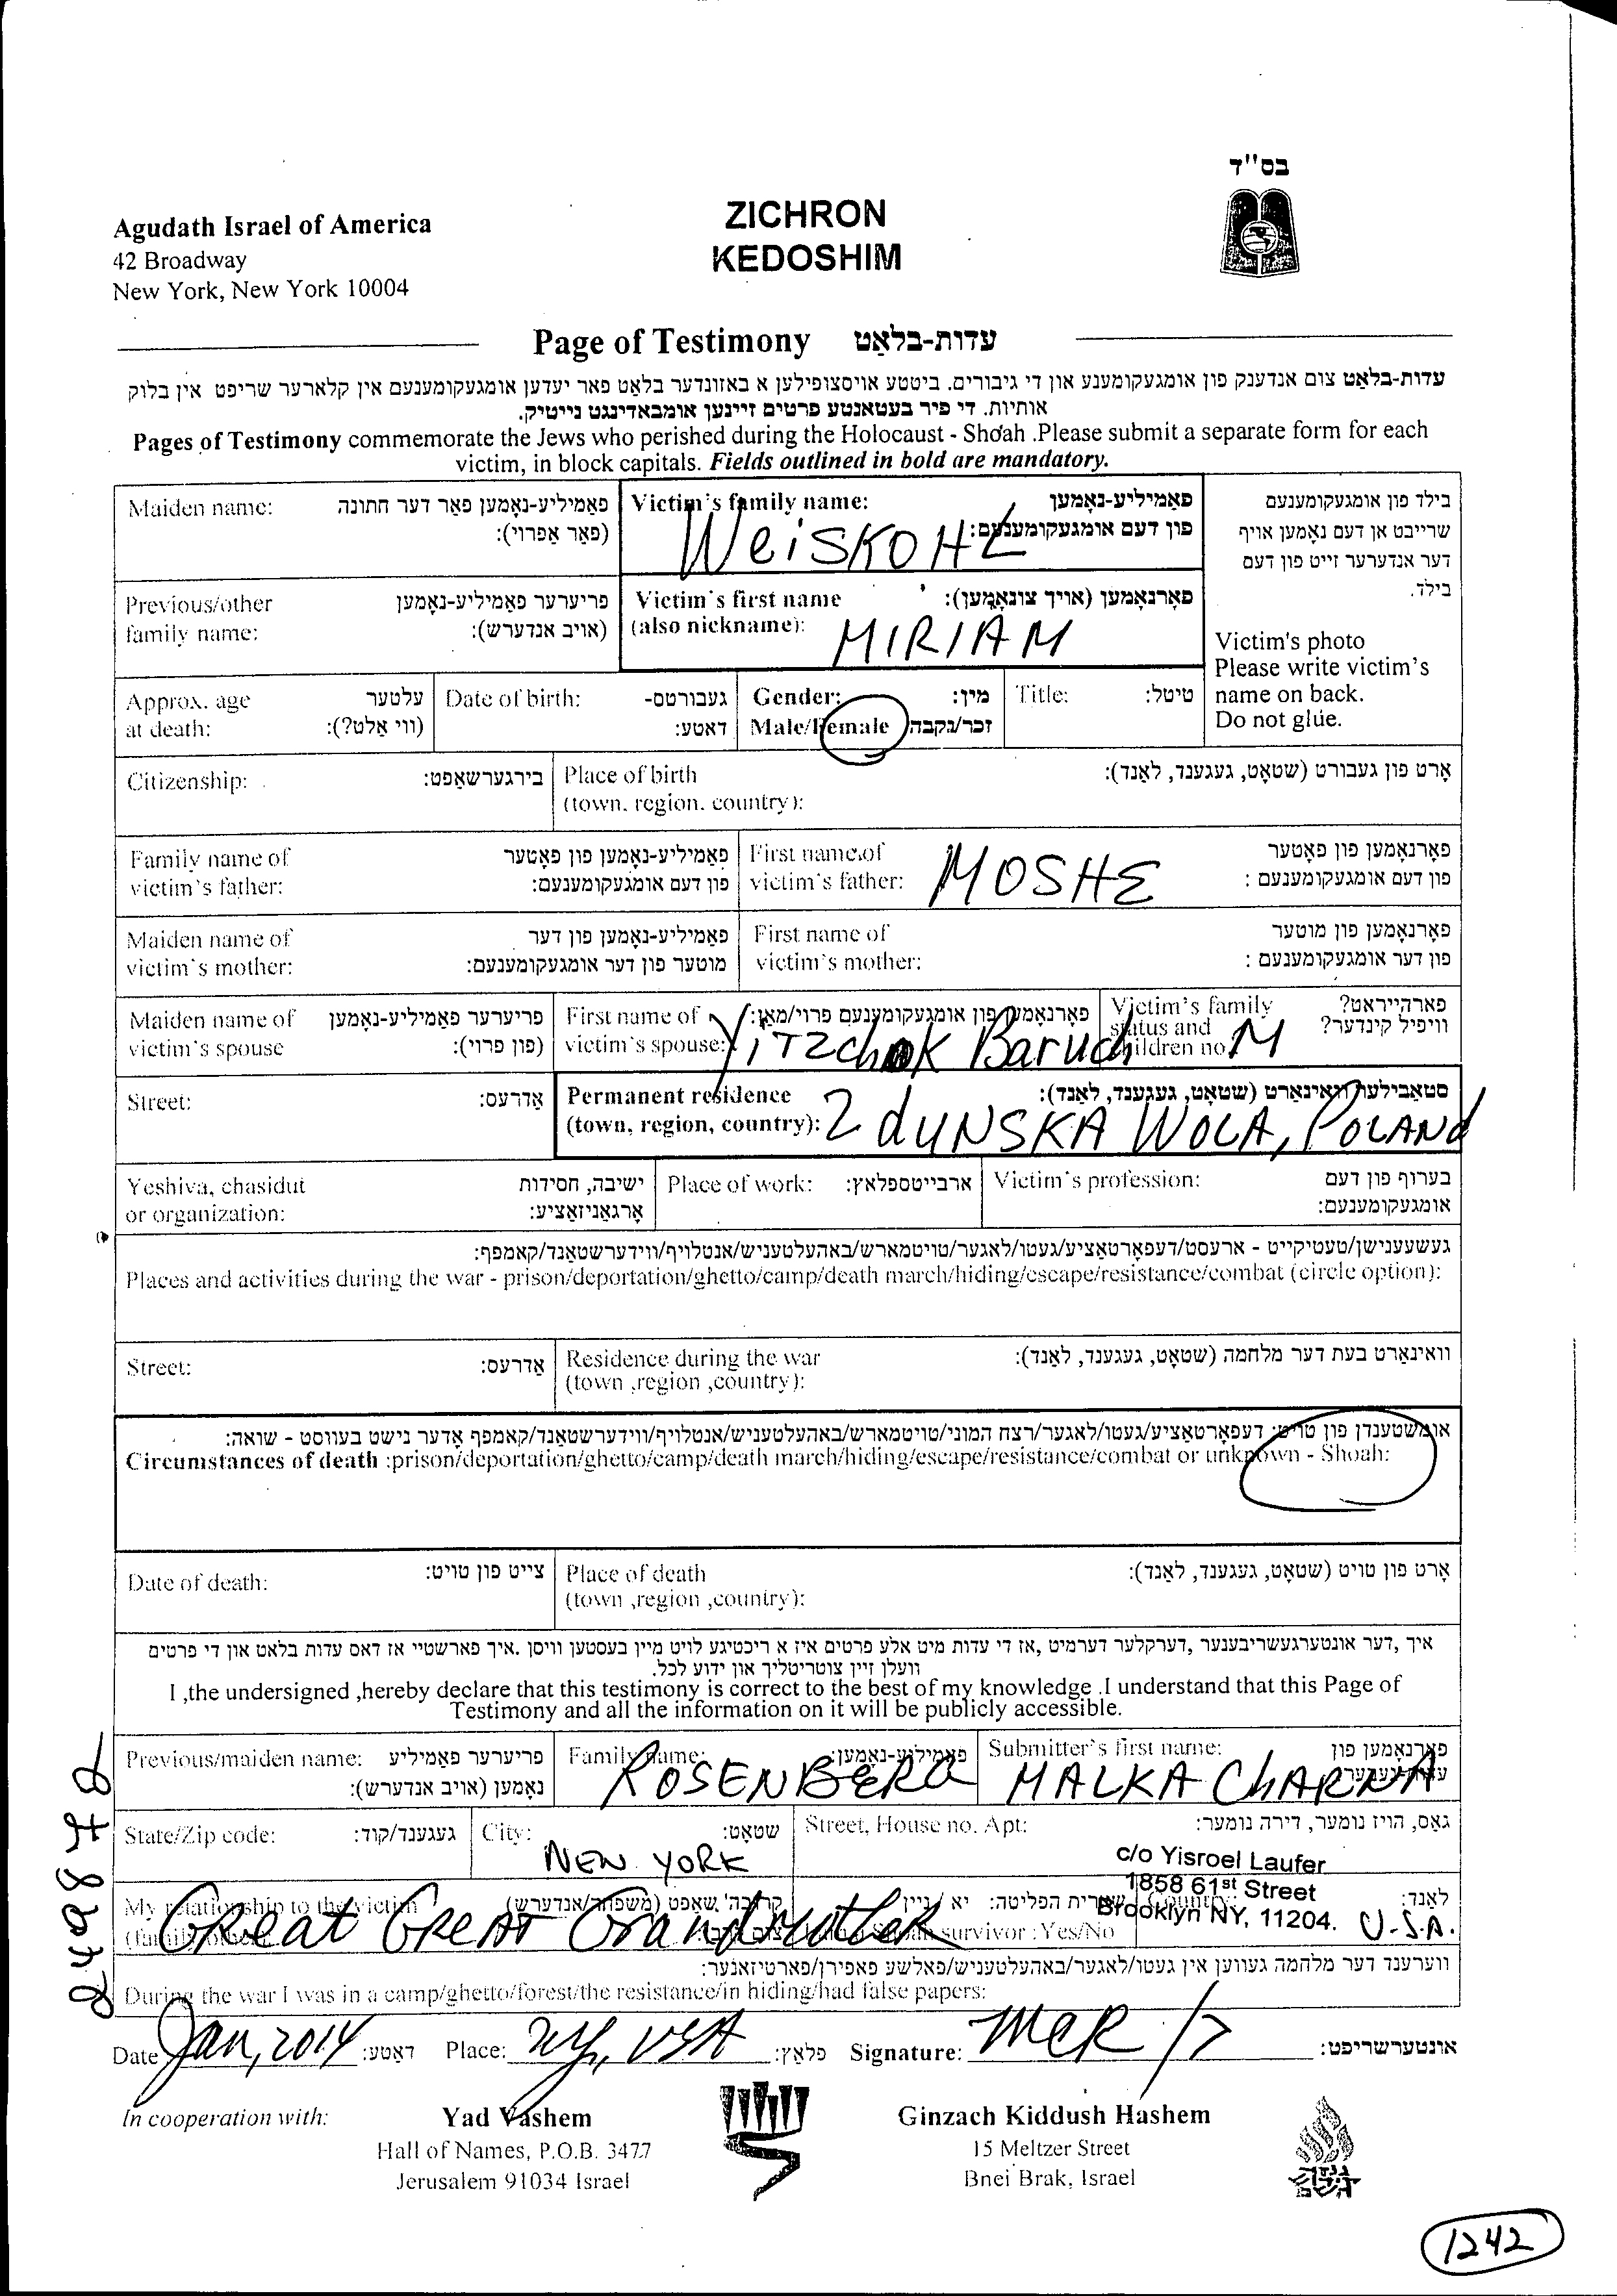 בס"ד
Agudath Israel of America
42 Broadway
New York, New York 10004
ZICHRON
KEDOSHIM
Page of Testimony עדות-בלאַט
עדות-בלאַט צום אנדענק פון אומגעקומענע און די גיבורים. ביטטע אויסצופילען א באזונדער בלאַט פאר יעדען אומגעקומענעם אין קלארער שריפט אין בלוק
אותיות. די פיר בעטאנטע פרטים זיינען אומבאדינגט נייטיק.
Pages of Testimony commemorate the Jews who perished during the Holocaust - Shoah .Please submit a separate form for each
victim, in block capitals. Fields outlined in bold are mandatory.
Maiden name: פאַמיליע-נאָמען פאר דער חתונה
(פאַר אַפרוי):
Victim's family name: פאַמיליע-נאָמען
פון דעם אומגעקומענעם:
WeiSKOHL
בילד פון אומגעקומענעם
שרייבט אן דעם נאָמען אויף
דער אנדערער זייט פון דעם
בילד.
Victim's photo
Please write victim's
name on back.
Do not glue.
Previous/other פריערער פאַמיליע-נאָמען
family name: (אויב אנדערש):
Victim's first name פאָרנאָמען (אויך צונאָמען):
(also nickname):
MIRIAM
Approx. age עלטער
at death: (ווי אַלט?):
Date of birth: געבורטס-
דאטע:
Gender: מין:
Male/Female זכר/נקבה
Title: טיטל:
Citizenship: בירגערשאַפט:
Place of birth אָרט פון געבורט (שטאָט, געגענד, לאַנד):
(town. region. country):
Family name of פאַמיליע-נאָמען פון פאָטער
victim's father: פון דעם אומגעקומענעם:
First name of פאָרנאָמען פון פאָטער
victim's father: פון דעם אומגעקומענעם :
MOSHE
Maiden name of פאַמיליע-נאָמען פון דער
victim's mother: מוטער פון דער אומגעקומענעם:
First name of פאָרנאָמען פון מוטער
victim's mother: פון דער אומגעקומענעם :
Maiden name of פריערער פאַמיליע-נאָמען
victim's spouse (פון פרוי):
First name of פאָרנאָמען פון אומגעקומענעם פרוי/מאַן:
victim's spouse:
YiTZchok Baruch
Victim's family פארהייראט?
status and וויפיל קינדער?
children no. M
Street: אַדרעס:
Permanent residence סטאַבילער וואוינאָרט (שטאָט, געגענד, לאַנד):
(town, region, country):
ZdUNSKA WOLA, POLANd
Yeshiva, chasidut ישיבה, חסידות
or organization: אָרגאַניזאַציע:
Place of work: ארבייטספלאץ:
Victim's profession: בערוף פון דעם
אומגעקומענעם:
געשעענישן/טעטיקייט - ארעסט/דעפאָרטאַציע/געטו/לאגער/טויטמארש/באהעלטעניש/אנטלויף/ווידערשטאַנד/קאמפף:
Places and activities during the war - prison/deportation/ghetto/camp/death march/hiding/escape/resistance/combat (circle option):
Street: אַדרעס:
Residence during the war וואינאָרט בעת דער מלחמה (שטאָט, געגענד, לאַנד):
(town ,region ,country):
אומשטענדן פון טויט: דעפאָרטאַציע/געטו/לאגער/רצח המוני/טויטמארש/באהעלטעניש/אנטלויף/ווידערשטאַנד/קאמפף אָדער נישט בעווסט - שואה:
Circumstances of death :prison/deportation/ghetto/camp/death march/hiding/escape/resistance/combat or unknown - Shoah:
Date of death: צייט פון טויט:
Place of death אָרט פון טויט (שטאָט, געגענד, לאַנד):
(town ,region ,country):
איך ,דער אונטערגעשריבענער ,דערקלער דערמיט ,אז די עדות מיט אלע פרטים איז א ריכטיגע לויט מיין בעסטען וויסן .איך פארשטיי אז דאס עדות בלאט און די פרטים
וועלן זיין צוטריטליך און ידוע לכל.
I ,the undersigned ,hereby declare that this testimony is correct to the best of my knowledge .I understand that this Page of
Testimony and all the information on it will be publicly accessible.
Previous/maiden name: פריערער פאַמיליע
נאָמען (אויב אנדערש):
Family name: פאַמיליע-נאָמען:
ROSENBERG
Submitter's first name: פאָרנאָמען פון
MALKA CHARNA
State/Zip code: געגענד/קוד:
City: שטאָט:
NEW YORK
Street, House no. Apt: גאַס, הויז נומער, דירה נומער:
c/o Yisroel Laufer
1858 61st Street
Brooklyn NY, 11204.
Country: לאַנד:
U.S.A.
My relationship to the victim (משפחה/אנדערש)
GReat GReat Grandmother
שארית הפליטה: יא / ניין
survivor : Yes/No
ווערענד דער מלחמה געווען אין געטו/לאגער/באהעלטעניש/פאלשע פאפירן/פארטיזאנער:
During the war I was in a camp/ghetto/forest/the resistance/in hiding/had false papers:
Date Jan, 2014 דאַטע: Place: NY, USA פלאַץ: Signature: MCR אונטערשריפט:
In cooperation with:
Yad Vashem
Hall of Names, P.O.B. 3477
Jerusalem 91034 Israel
Ginzach Kiddush Hashem
15 Meltzer Street
Bnei Brak, Israel
1242